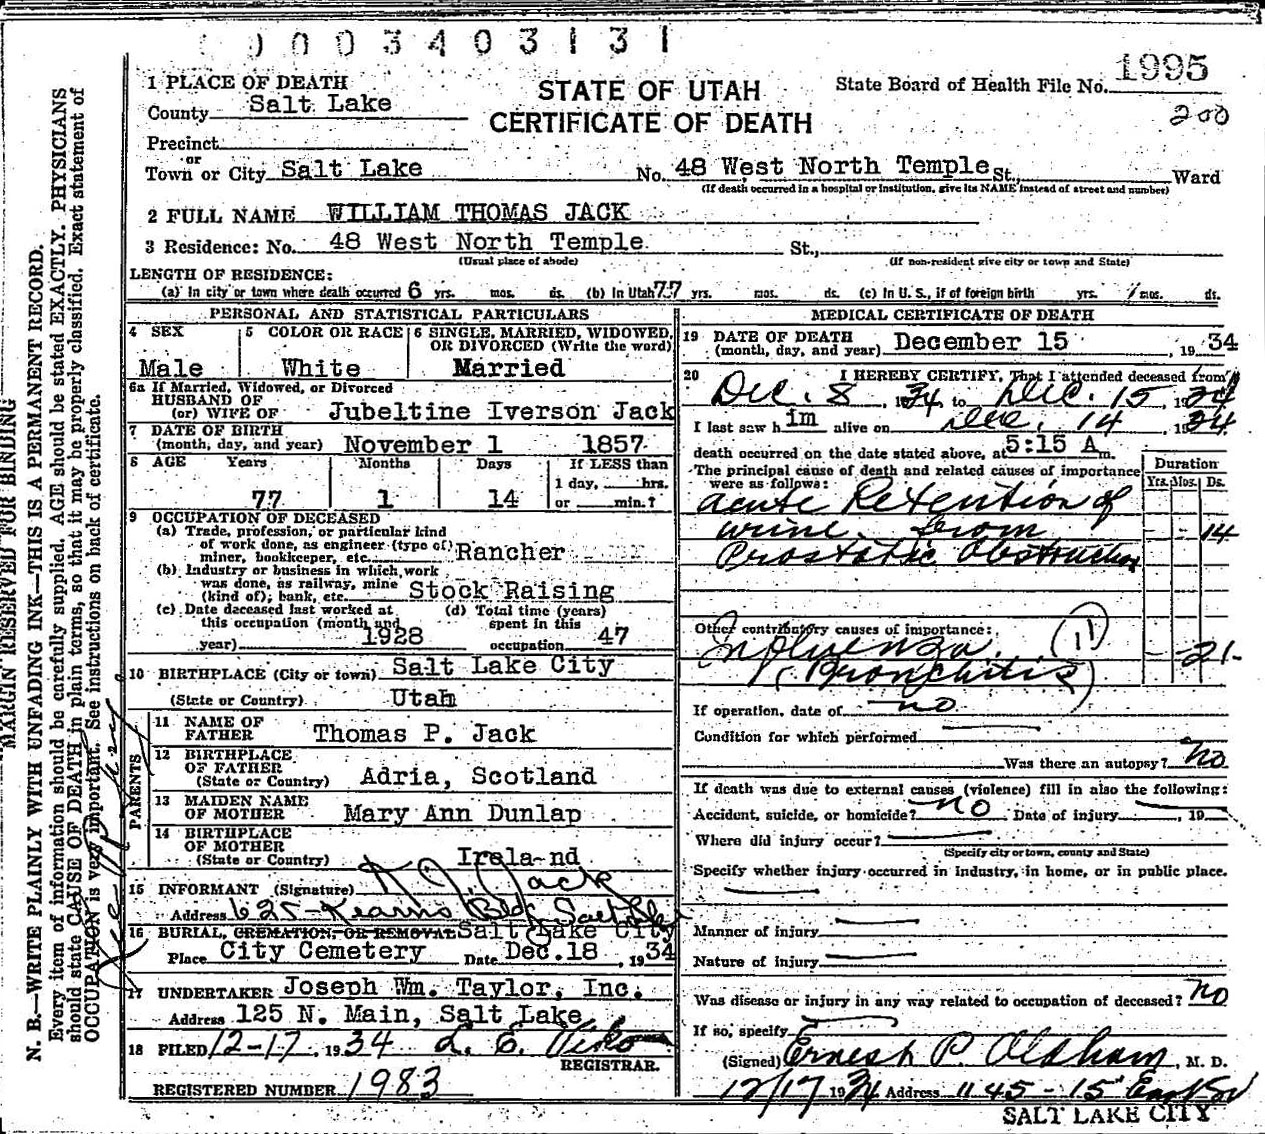 0003403131
1 PLACE OF DEATH
STATE OF UTAH
State Board of Health File No. 1995
County Salt Lake
CERTIFICATE OF DEATH
200
Precinct
or
Town or City Salt Lake No. 48 West North Temple St., Ward
(If death occurred in a hospital or institution, give its NAME instead of street and number)
2 FULL NAME WILLIAM THOMAS JACK
3 Residence: No. 48 West North Temple St.,
(Usual place of abode) (If non-resident give city or town and State)
LENGTH OF RESIDENCE:
(a) In city or town where death occurred 6 yrs. mos. ds. (b) In Utah 77 yrs. mos. ds. (c) In U. S., if of foreign birth yrs. mos. ds.
PERSONAL AND STATISTICAL PARTICULARS
4 SEX 5 COLOR OR RACE 6 SINGLE, MARRIED, WIDOWED,
OR DIVORCED (Write the word)
Male White Married
6a If Married, Widowed, or Divorced
HUSBAND OF
(or) WIFE OF Jubeltine Iverson Jack
7 DATE OF BIRTH
(month, day, and year) November 1 1857
8 AGE Years Months Days If LESS than
1 day, hrs.
77 1 14 or min.?
9 OCCUPATION OF DECEASED
(a) Trade, profession, or particular kind
of work done, as engineer (type of)
miner, bookkeeper, etc. Rancher
(b) Industry or business in which work
was done, as railway, mine
(kind of); bank, etc. Stock Raising
(c) Date deceased last worked at (d) Total time (years)
this occupation (month and spent in this
year) 1928 occupation 47
10 BIRTHPLACE (City or town) Salt Lake City
(State or Country) Utah
PARENTS
11 NAME OF
FATHER Thomas P. Jack
12 BIRTHPLACE
OF FATHER
(State or Country) Adria, Scotland
13 MAIDEN NAME
OF MOTHER Mary Ann Dunlap
14 BIRTHPLACE
OF MOTHER
(State or Country) Irela-nd
15 INFORMANT (Signature) Jack
Address 625-Kearns Bldg Salt Lake
16 BURIAL, CREMATION, OR REMOVAL Salt Lake City
Place City Cemetery Date Dec. 18, 1934
17 UNDERTAKER Joseph Wm. Taylor, Inc.
Address 125 N. Main, Salt Lake
18 FILED 12-17, 1934 L. E. Viko
REGISTRAR.
REGISTERED NUMBER 1983
MEDICAL CERTIFICATE OF DEATH
19 DATE OF DEATH
(month, day, and year) December 15, 1934
20 I HEREBY CERTIFY, That I attended deceased from
Dec. 8, 1934, to Dec. 15, 1934
I last saw him alive on Dec. 14 1934
death occurred on the date stated above, at 5:15 A m.
The principal cause of death and related causes of importance
were as follows: Duration
Yrs. Mos. Ds.
Acute Retention of
urine from - 14
Prostatic Obstruction
Other contributory causes of importance:
Influenza (11) - - 21 -
(Bronchitis)
If operation, date of no
Condition for which performed
Was there an autopsy? No
If death was due to external causes (violence) fill in also the following:
Accident, suicide, or homicide? no Date of injury , 19
Where did injury occur?
(Specify city or town, county and State)
Specify whether injury occurred in industry, in home, or in public place.
Manner of injury
Nature of injury
Was disease or injury in any way related to occupation of deceased? no
If so, specify
(Signed) Ernest P. Oldham, M. D.
12/17 1934 Address 1145-15 East So
SALT LAKE CITY
MARGIN RESERVED FOR BINDING
N. B.—WRITE PLAINLY WITH UNFADING INK—THIS IS A PERMANENT RECORD.
Every item of information should be carefully supplied. AGE should be stated EXACTLY. PHYSICIANS
should state CAUSE OF DEATH in plain terms, so that it may be properly classified. Exact statement of
OCCUPATION is very important. See instructions on back of certificate.